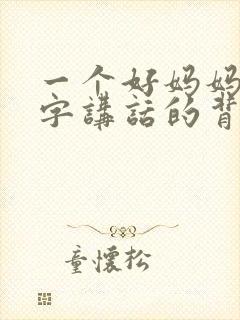 一个好妈妈
字講話的背
童懷松